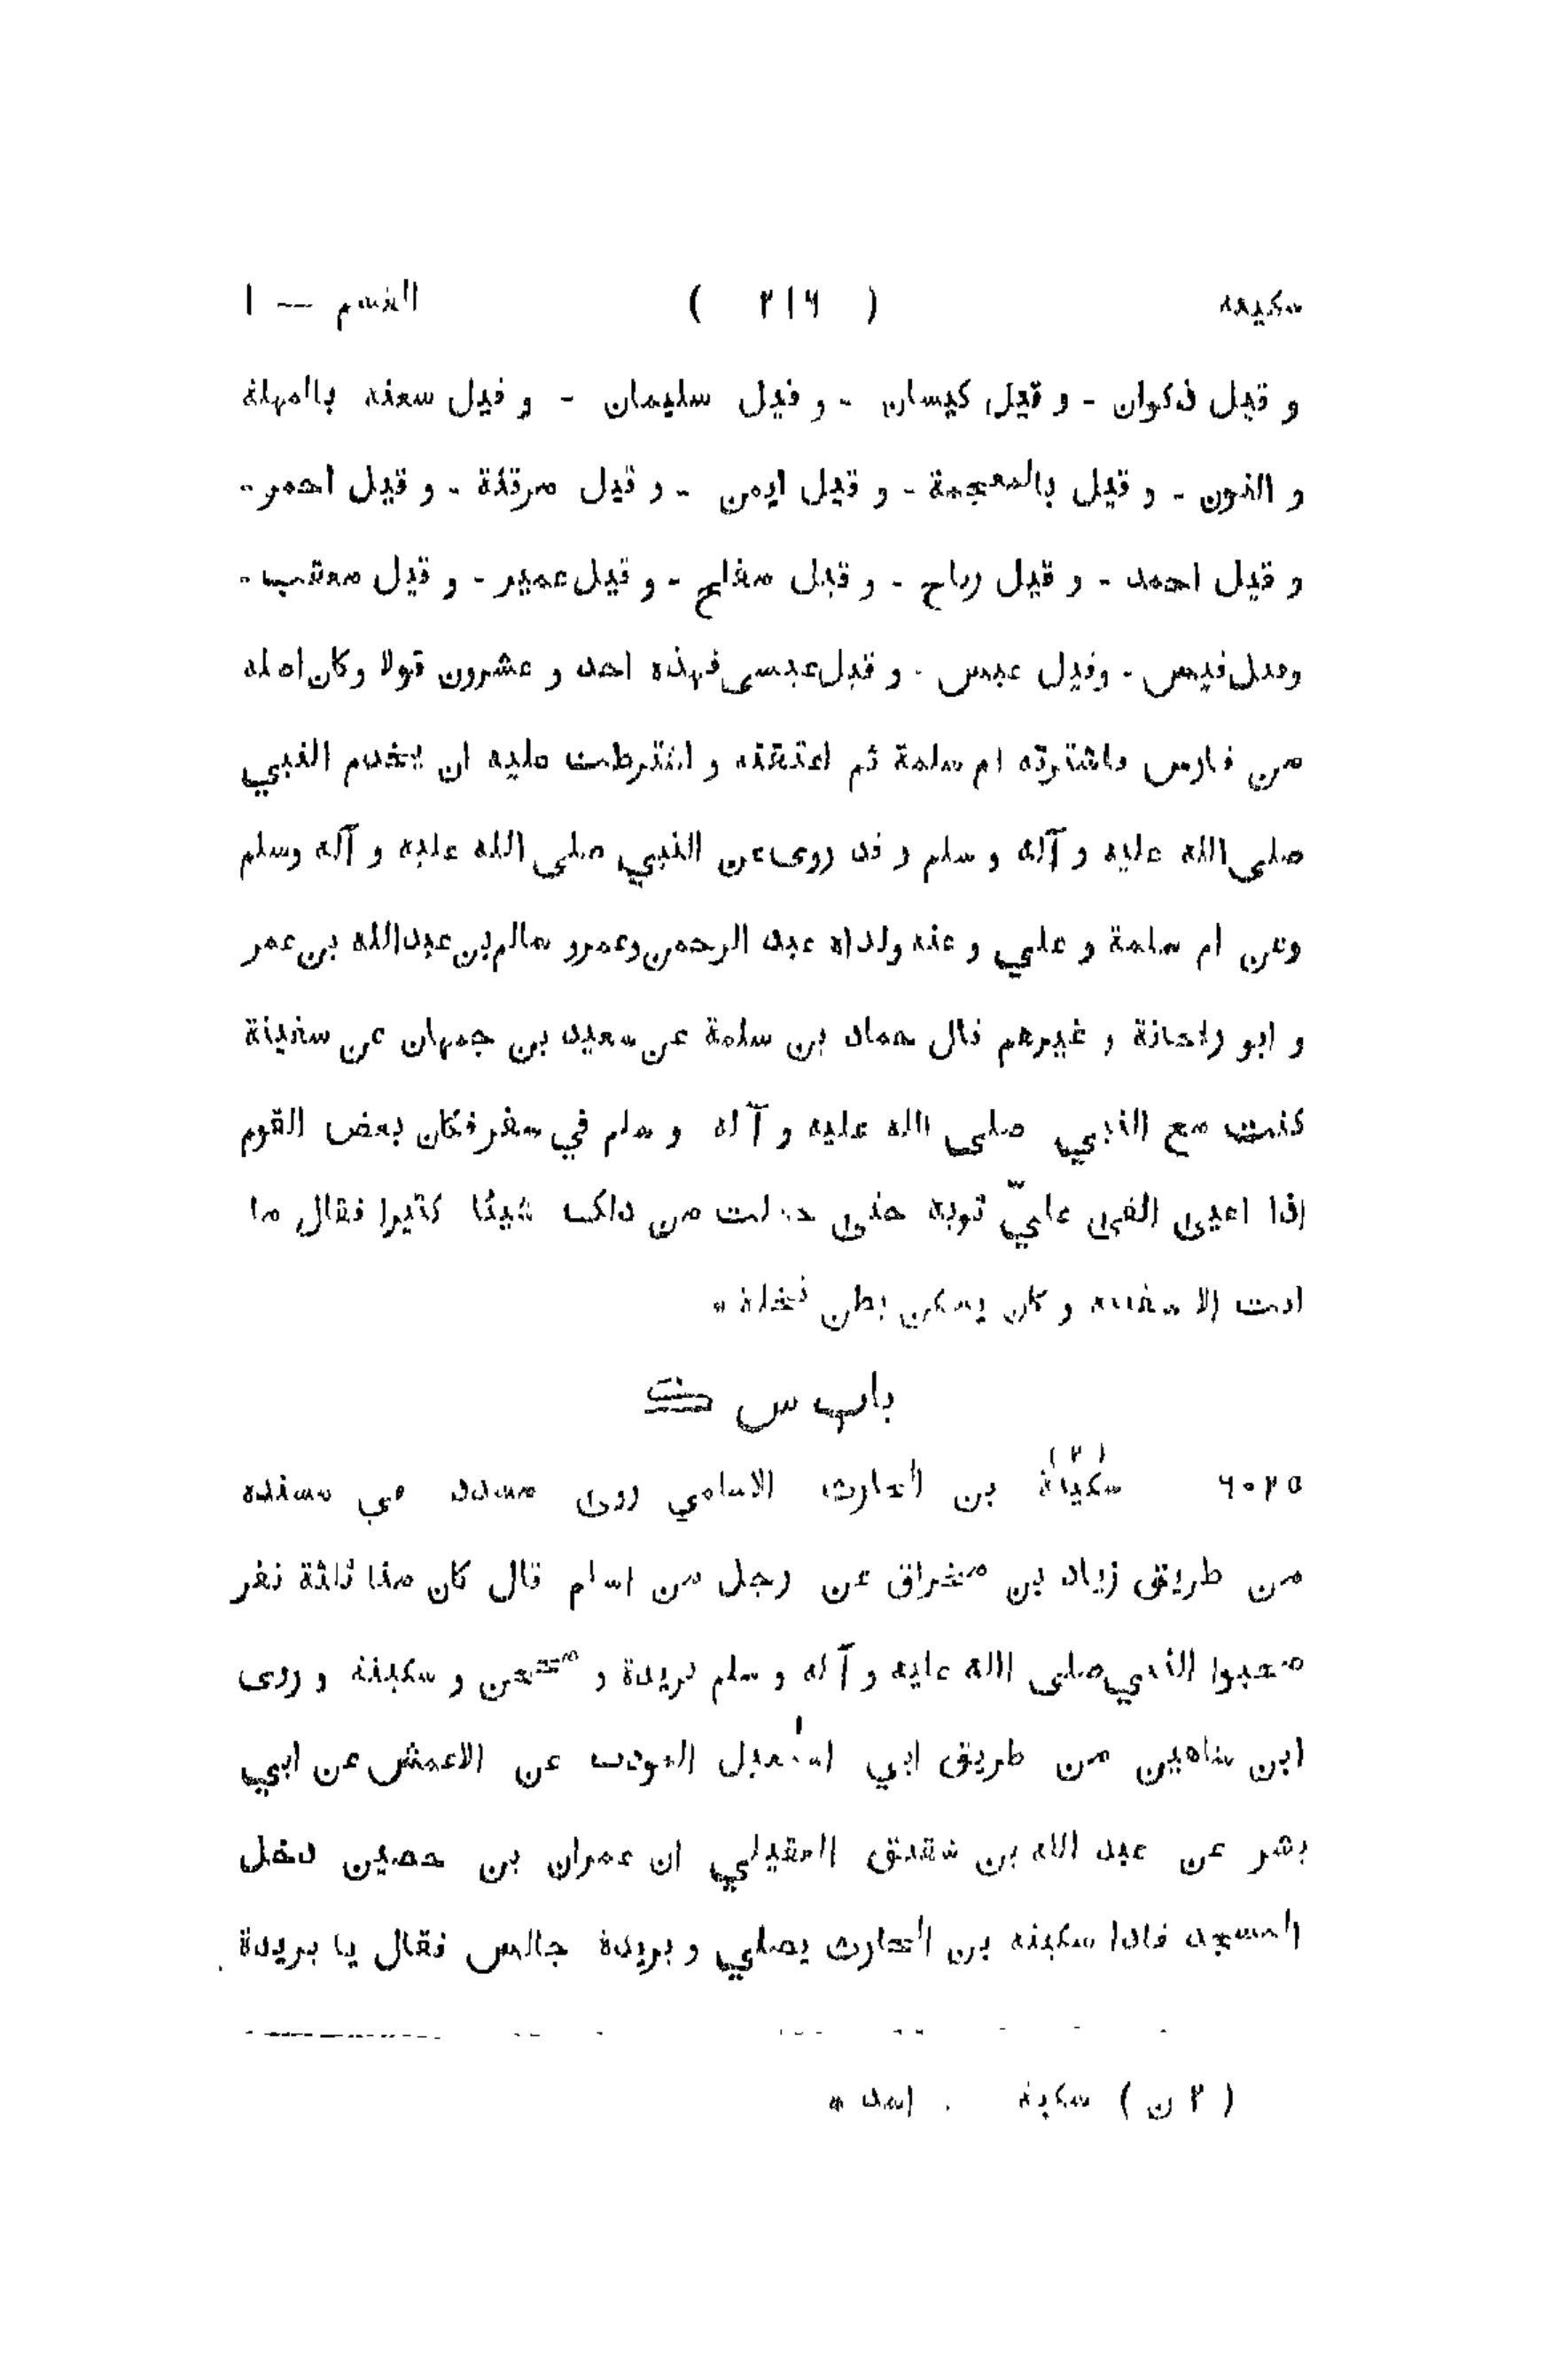 سكينه ( ٢١٦ ) القسم — ١
و قيل ذكوان - و قيل كيسان - و قيل سليمان - و قيل سعنه بالمهلة
و النون - و قيل بالمعجمة - و قيل ايمن - و قيل مرقنة - و قيل احمر -
و قيل احمد - و قيل رباح - و قيل مفلح - و قيل عمير - و قيل معقب -
وقيل قيس - وقيل عبس - و قيل عيسى فهذه احد و عشرون قولا وكان اصله
من فارس فاشترته ام سلمة ثم اعتقته و اشترطت عليه ان يخدم النبي
صلى الله عليه و آله و سلم و قد روى عن النبي صلى الله عليه و آله وسلم
وعن ام سلمة و علي و عنه ولداه عبد الرحمن وعمرو سالم بن عبد الله بن عمر
و ابو ريحانة و غيرهم قال حماد بن سلمة عن سعيد بن جمهان عن سفينة
كنت مع النبي صلى الله عليه و آله و سلم في سفر فكان بعض القوم
اذا اعيى القى عليّ ثوبه حتى حملت من ذلك شيئا كثيرا فقال ما
انت الا سفينه و كان يسكن بطن نخلة *
باب س ك
٦٠٢٥ سكينة (٢) بن الحارث الاسلمي روى مسدد في مسنده
من طريق زياد بن مخراق عن رجل من اسلم قال كان منا ثلثة نفر
صحبوا النبي صلى الله عليه و آله و سلم بريدة و محجن و سكينة و روى
ابن شاهين من طريق ابي اسمعيل المودب عن الاعمش عن ابي
بشر عن عبد الله بن شقيق العقيلي ان عمران بن حصين دخل
المسجد فاذا سكينه بن الحارث يصلي و بريدة جالس فقال يا بريدة
( ٢ ن ) سكبة . اسد *